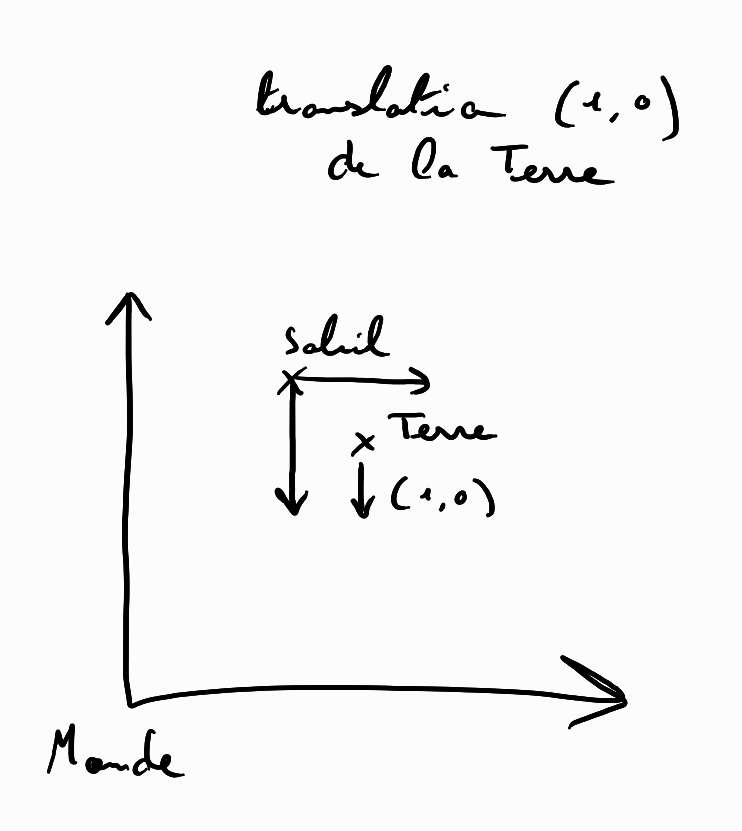 translation (1,0)
de la Terre
Soleil
Terre
(1,0)
Monde